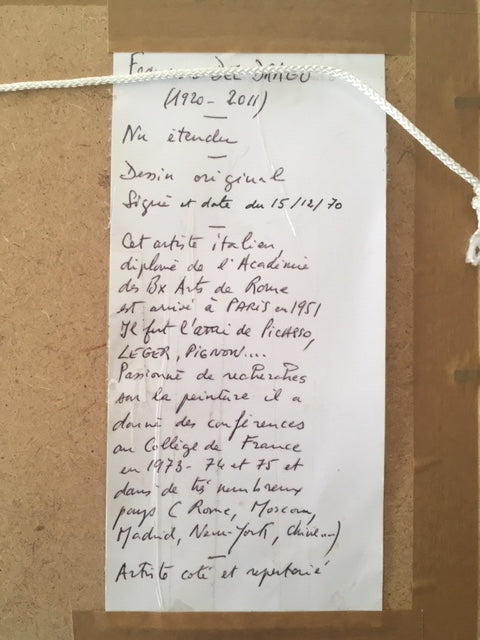 DEL DRAGO
(1920 - 2011)
Nu étendu
Dessin original
Signé et daté du 15/12/70
Cet artiste italien,
diplomé de l'Académie
des Bx Arts de Rome
est arrivé à PARIS en 1951
Il fut l'ami de PICASSO,
LEGER, PIGNON....
Passionné de recherches
sur la peinture il a
donné des conférences
au Collège de France
en 1973 - 74 et 75 et
dans de très nombreux
pays ( Rome, Moscou,
Madrid, New-York,
Artiste coté et repertorié